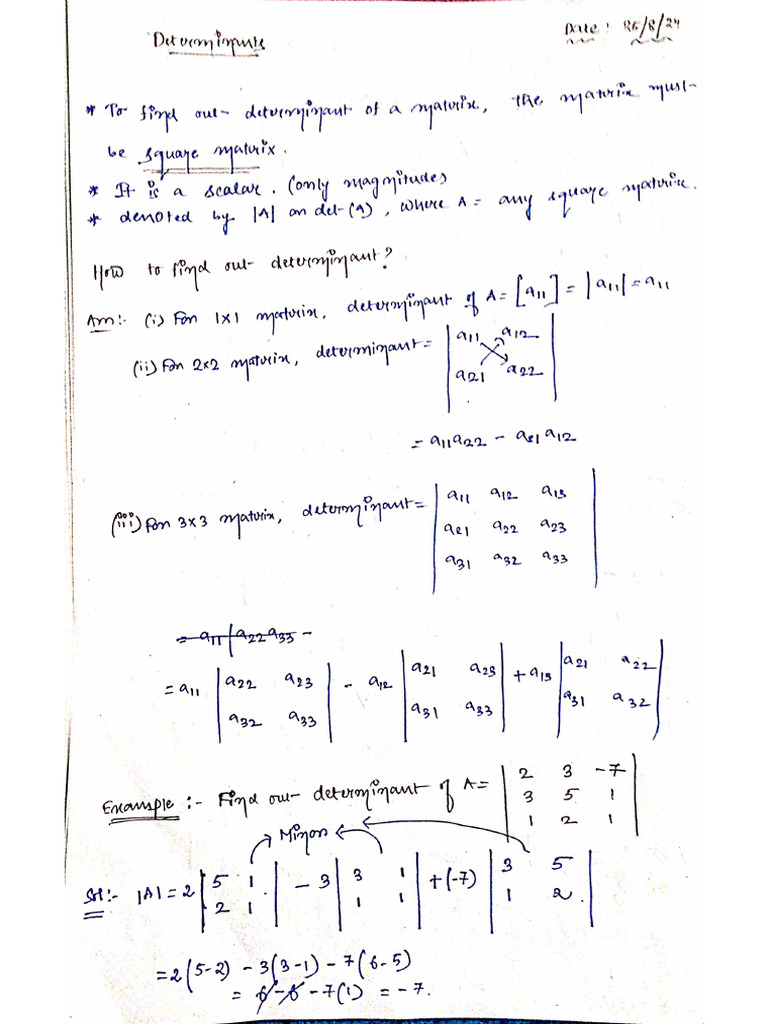 Determinants
Date: 25/8/24
* To find out determinant of a matrix, the matrix must
be square matrix.
* It is a scalar. (only magnitudes)
* denoted by |A| or det(A), where A = any square matrix.
How to find out determinant?
Ans:- (i) For 1x1 matrix, determinant of A = [a11] = |a11| = a11
(ii) For 2x2 matrix, determinant = | a11 a12 |
| a21 a22 |
= a11a22 - a21a12
(iii) For 3x3 matrix, determinant = | a11 a12 a13 |
| a21 a22 a23 |
| a31 a32 a33 |
= a11 | a22 a33 -
= a11 | a22 a23 | - a12 | a21 a23 | + a13 | a21 a22 |
| a32 a33 | | a31 a33 | | a31 a32 |
Example :- Find out determinant of A = | 2 3 -7 |
| 3 5 1 |
| 1 2 1 |
Minor
Sol:- |A| = 2 | 5 1 | - 3 | 3 1 | + (-7) | 3 5 |
| 2 1 | | 1 1 | | 1 2 |
= 2(5-2) - 3(3-1) - 7(6-5)
= 6 - 6 - 7(1) = -7.